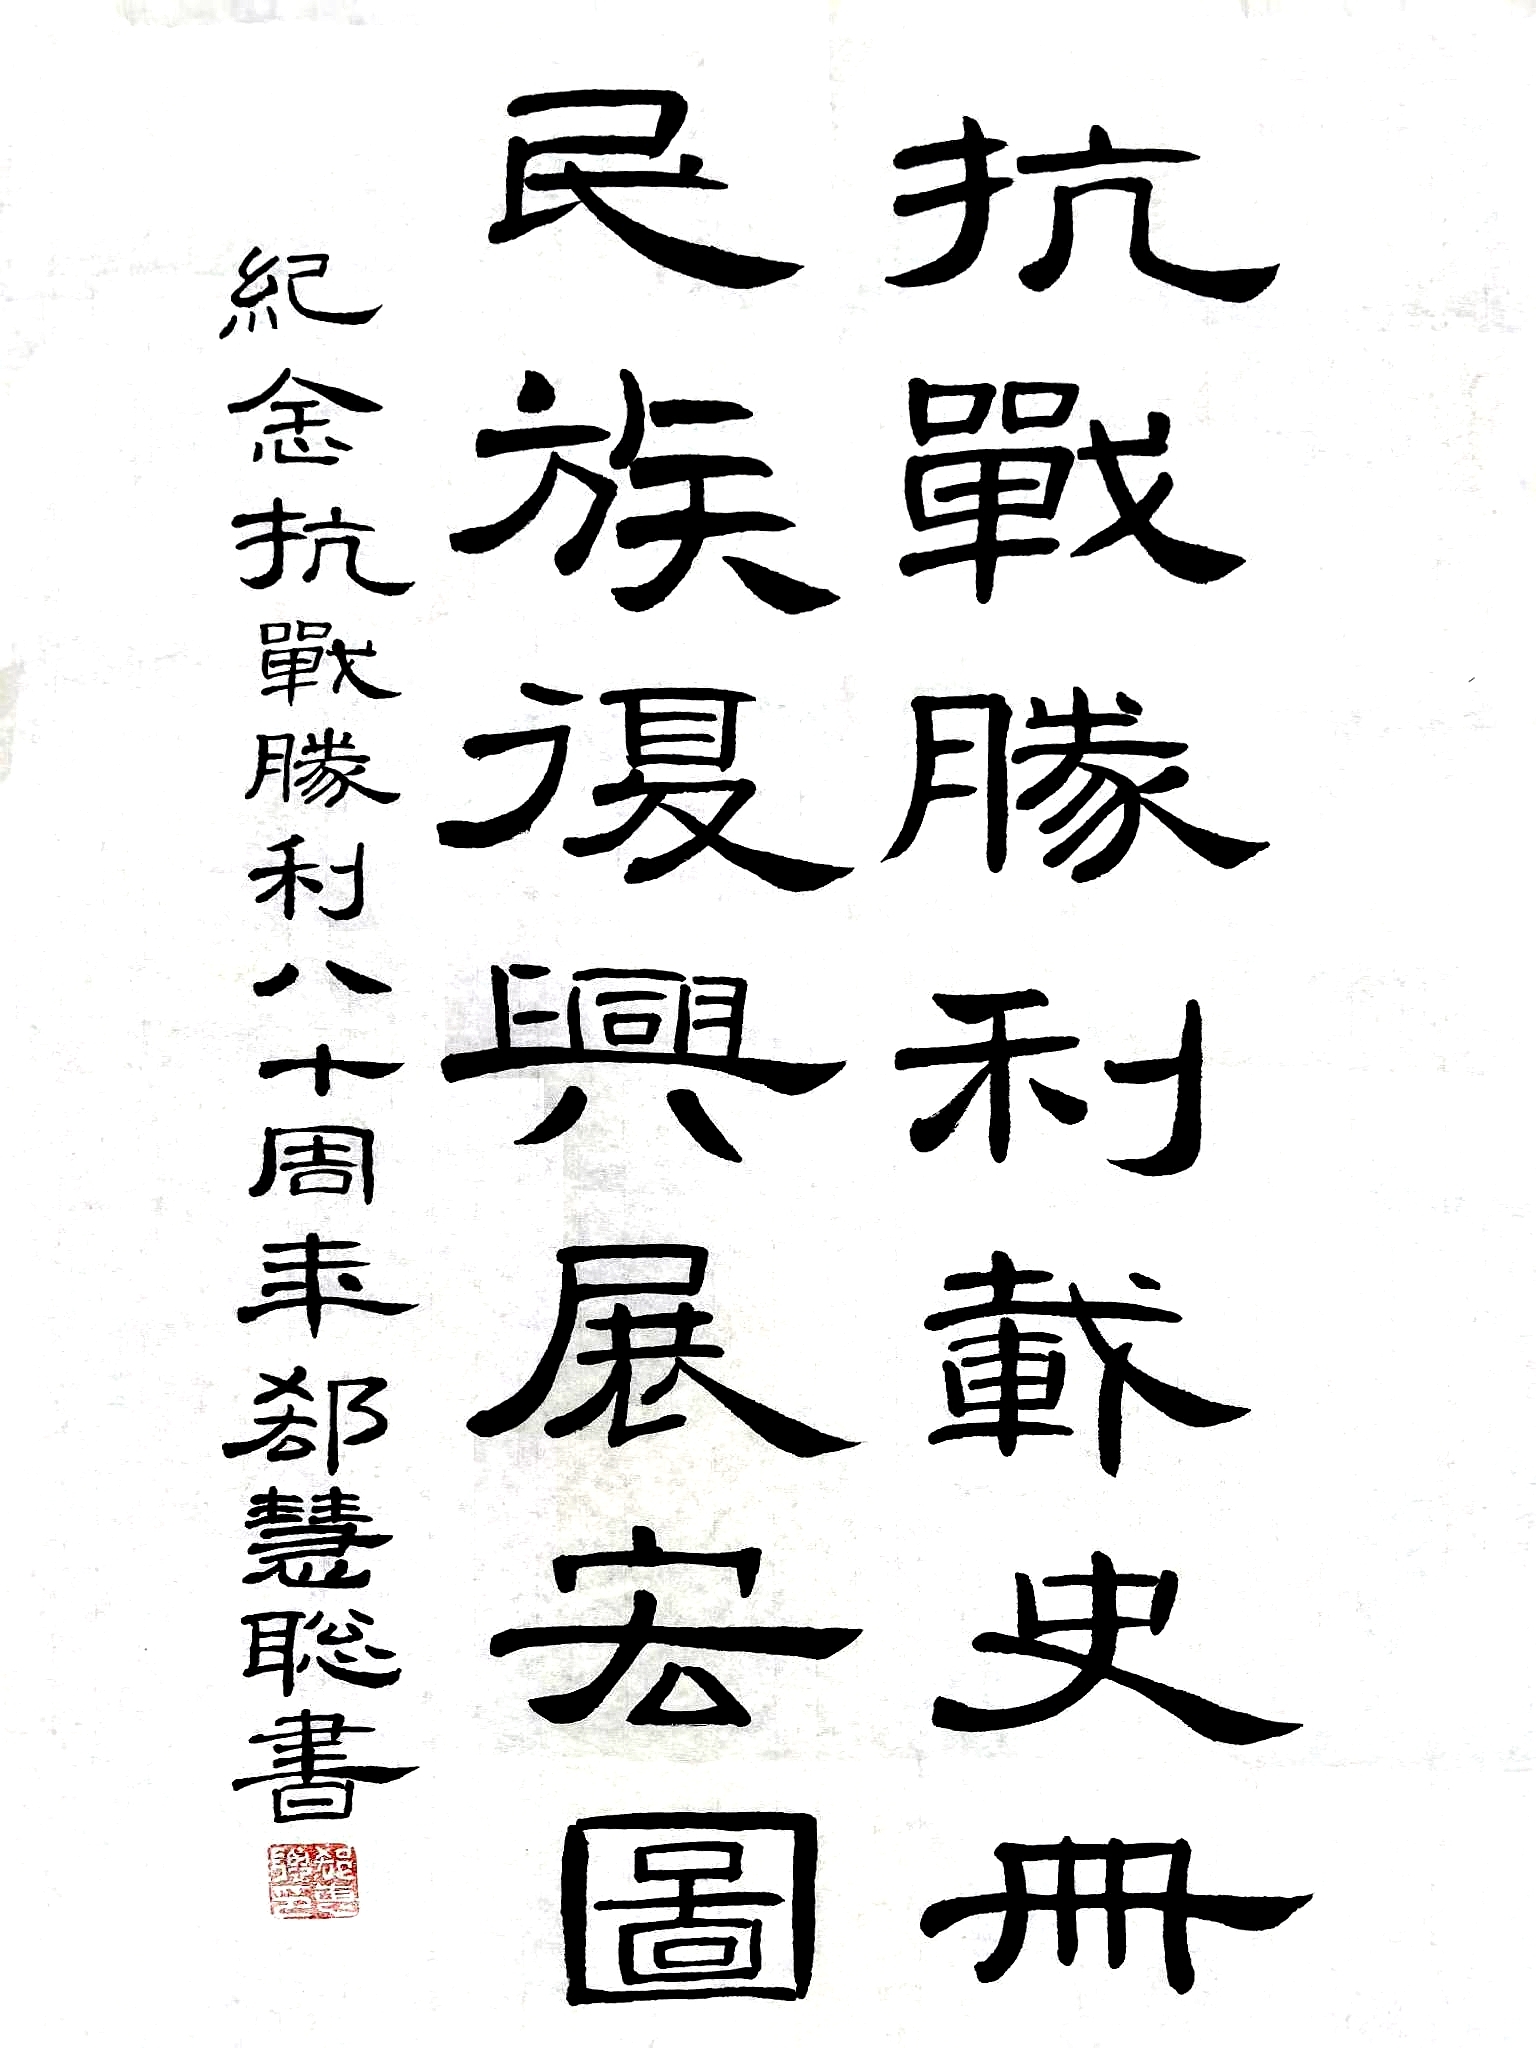 抗戰勝利載史冊
民族復興展宏圖
紀念抗戰勝利八十周年郄慧聪書